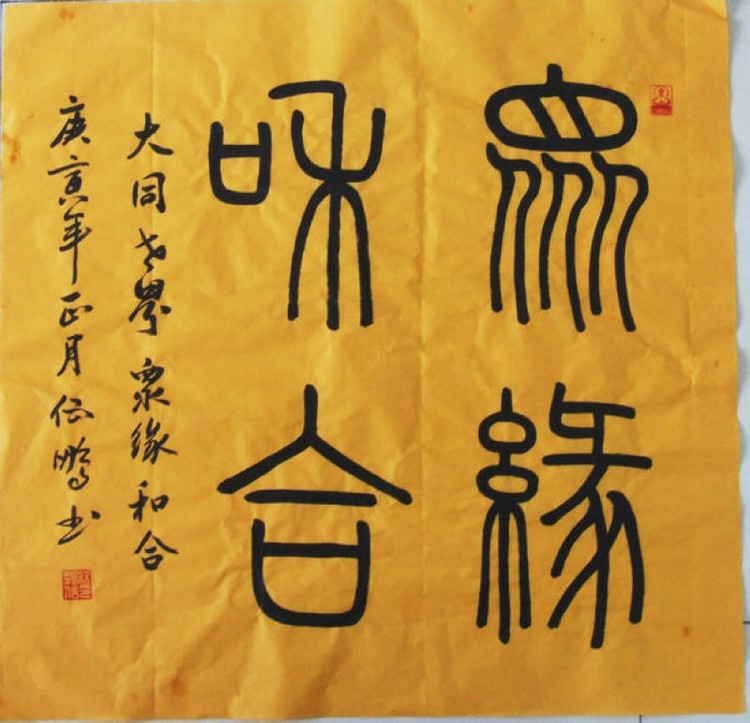 眾緣
和合
大同世界眾緣和合
庚寅年正月伍鵬书